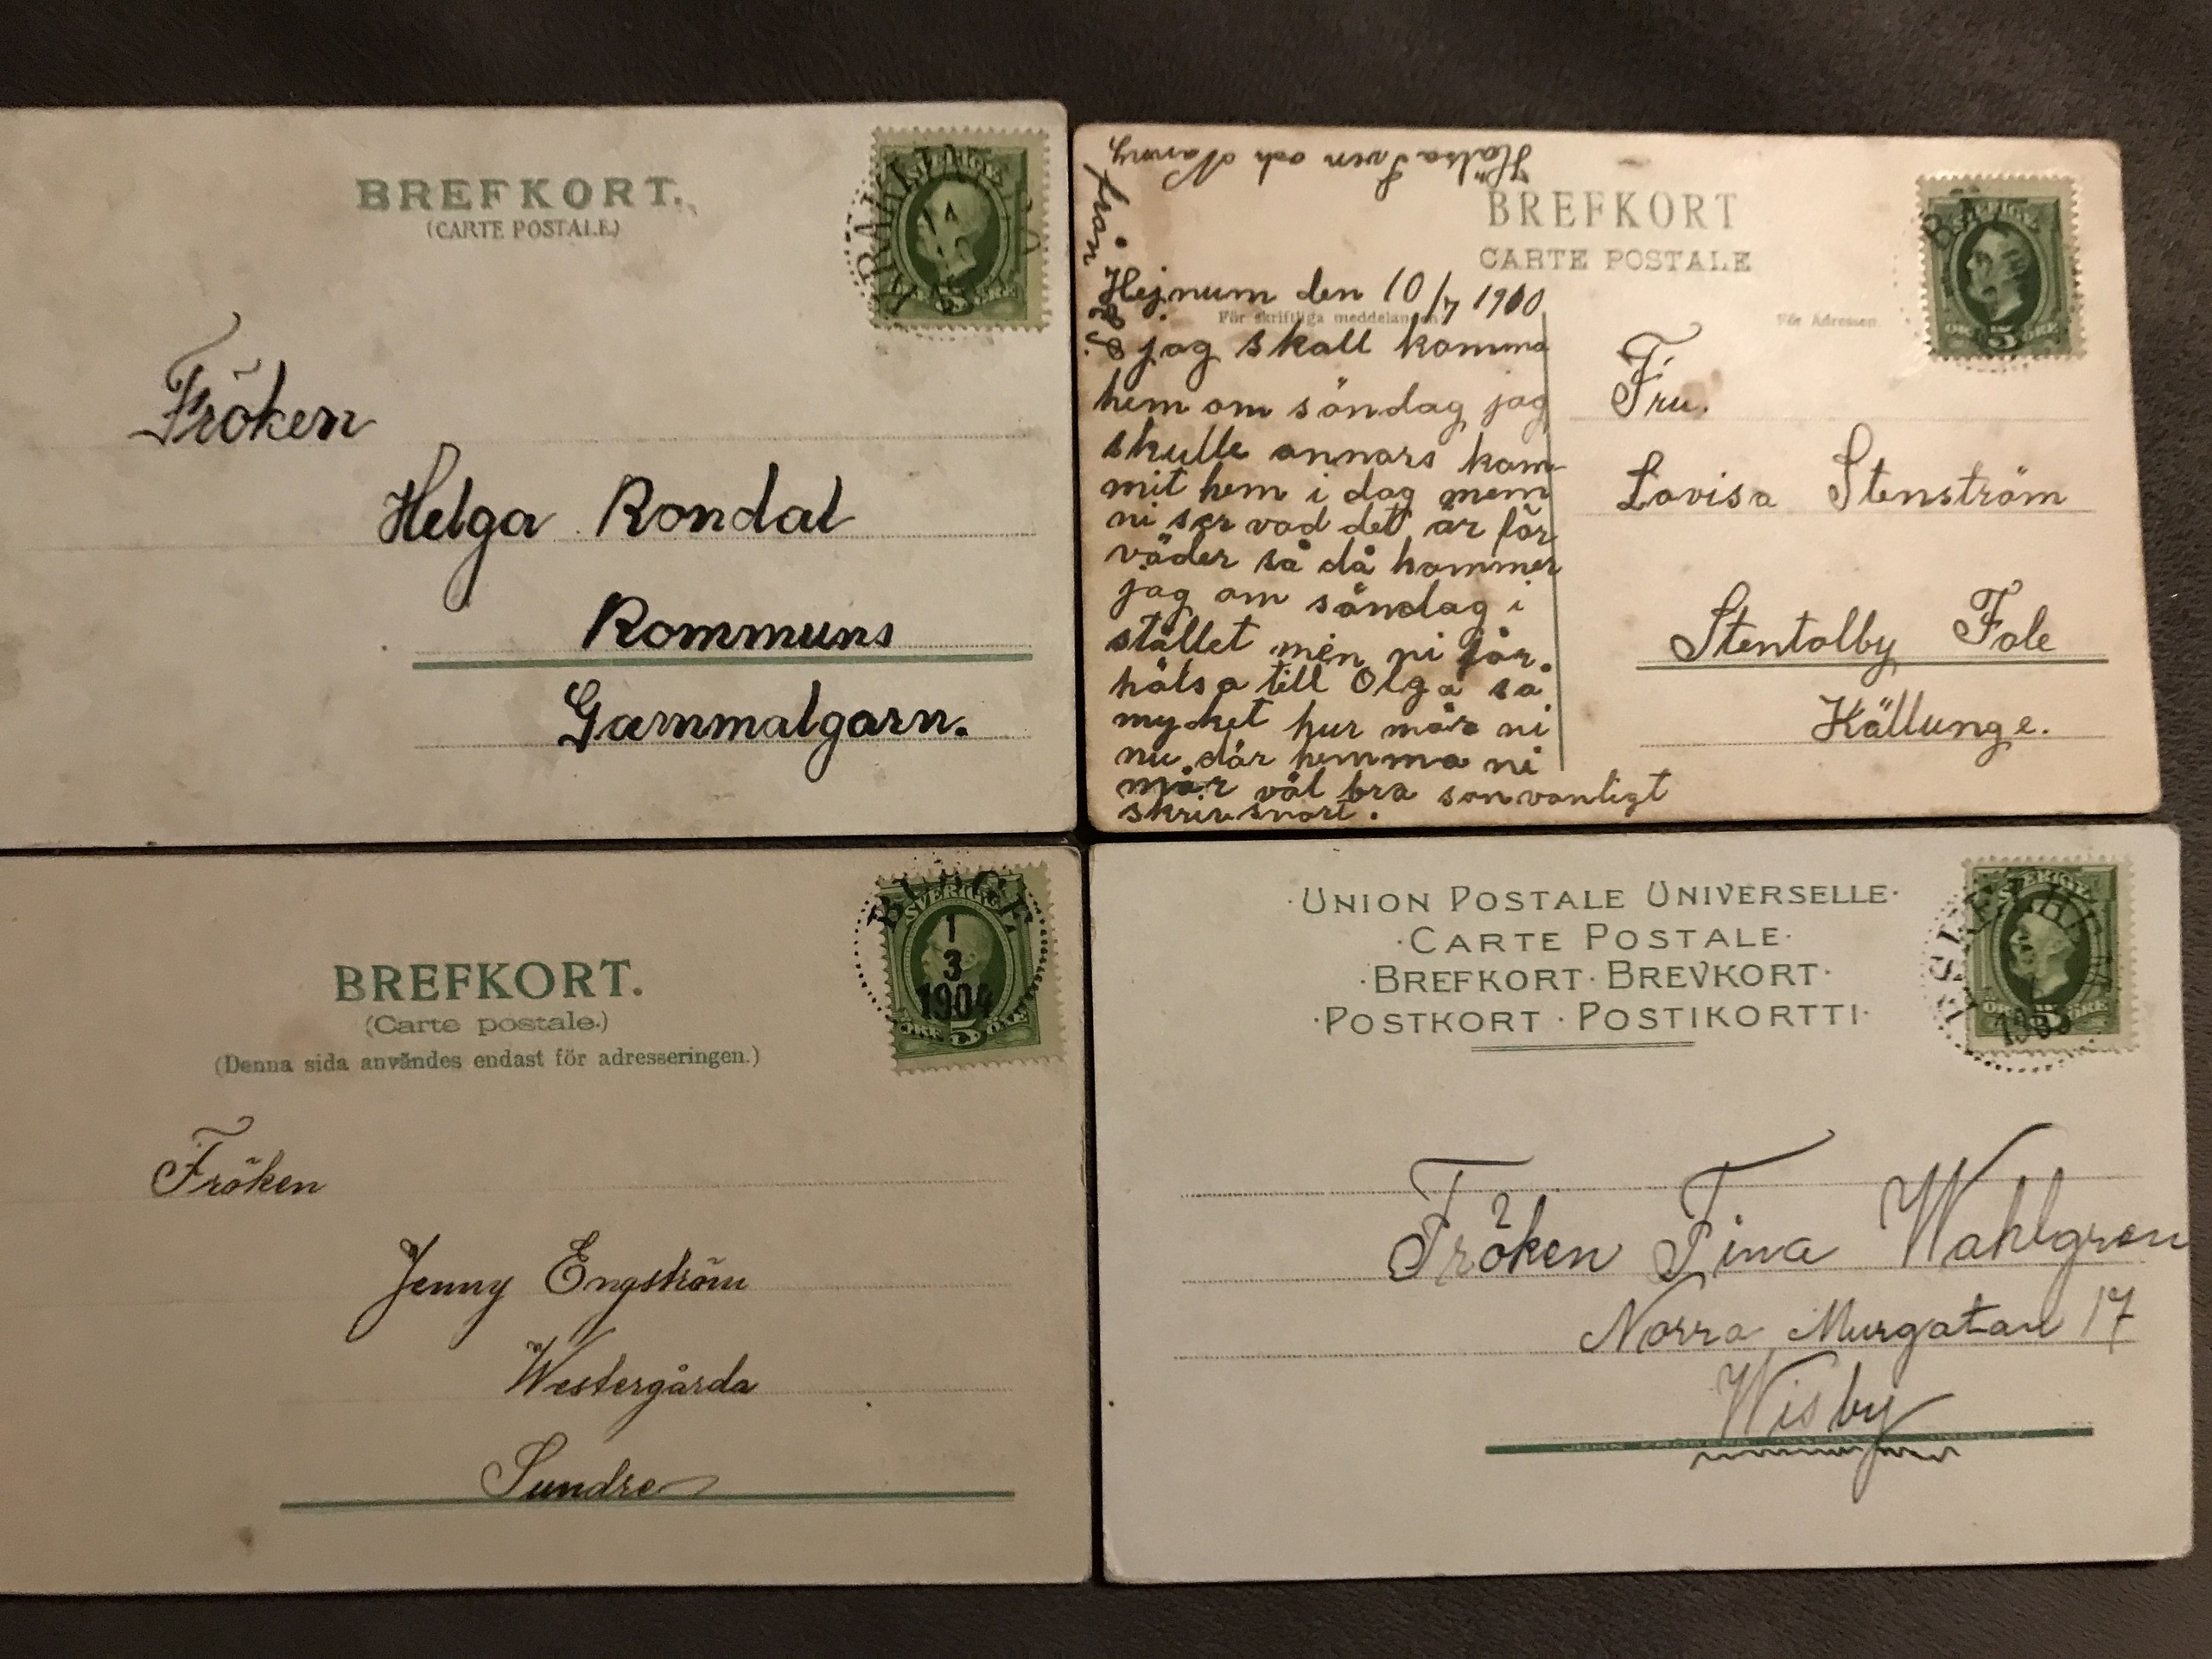 BREFKORT.
(CARTE POSTALE)
Fröken
Helga Rondal
Rommuns
Gammalgarn.
Hälsa Sven och Nanny
från
BREFKORT
CARTE POSTALE
Hejnum den 10/7 1910
För skriftliga meddelanden
För Adressen
SVERIGE
5
jag skall komma
hem om söndag jag
skulle annars kom
mit hem i dag mem
ni ser vad det är för
väder så då kommer
jag om söndag i
stället men ni får
hälsa till Olga så
mycket hur mår ni
nu där hemma ni
mår väl bra som vanligt
skriv snart.
Fru.
Lovisa Stenström
Stentalby Fole
Källunge.
BREFKORT.
(Carte postale.)
(Denna sida användes endast för adresseringen.)
BURGE
SVERIGE
1
3
1904
ÖRE 5 ÖRE
Fröken
Jenny Engström
Westergårda
Sundre
·UNION POSTALE UNIVERSELLE·
·CARTE POSTALE·
·BREFKORT·BREVKORT·
·POSTKORT·POSTIKORTTI·
Fröken Fina Wahlgren
Norra Murgatan 17
Wisby